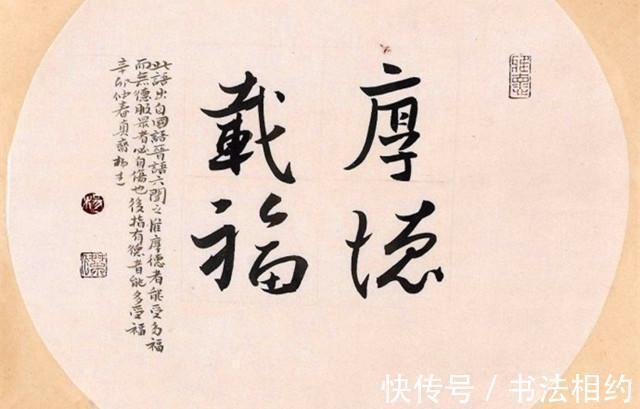 厚德
載福
此語出自國語晉語六聞之唯厚德者能受多福
而無德服眾者必自傷也後指有德者能多受福
辛卯仲春貞齋楊
快传号 / 书法相约